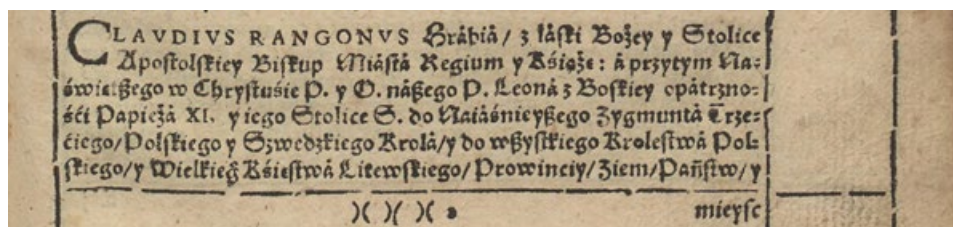 CLAVDIVS RANGONVS Hrábiá/ z łáski Bożey y Stolice
Apostolskiey Biskup Miástá Regium y Kśiążę: á przytym Na-
świętßego w Chrystuśie P. y O. náßego P. Leoná z Boskiey opátrzno-
śći Papieżá XI. y iego Stolice S. do Naiáśnieyßego Zygmuntá Trze-
ćiego/ Polskiego y Szwedzkiego Krolá/ y do wßystkiego Krolestwá Pol-
skiego/ y Wielkieg̃ Kśiestwá Litewskiego/ Prowinciy/ Ziem/ Pañstw/ y
)( )( )( 2 mieysc